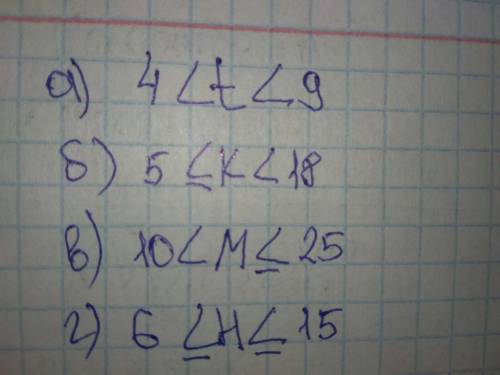 а) 4 < t < 9
б) 5 ≤ K < 18
в) 10 < M ≤ 25
г) 6 ≤ H ≤ 15